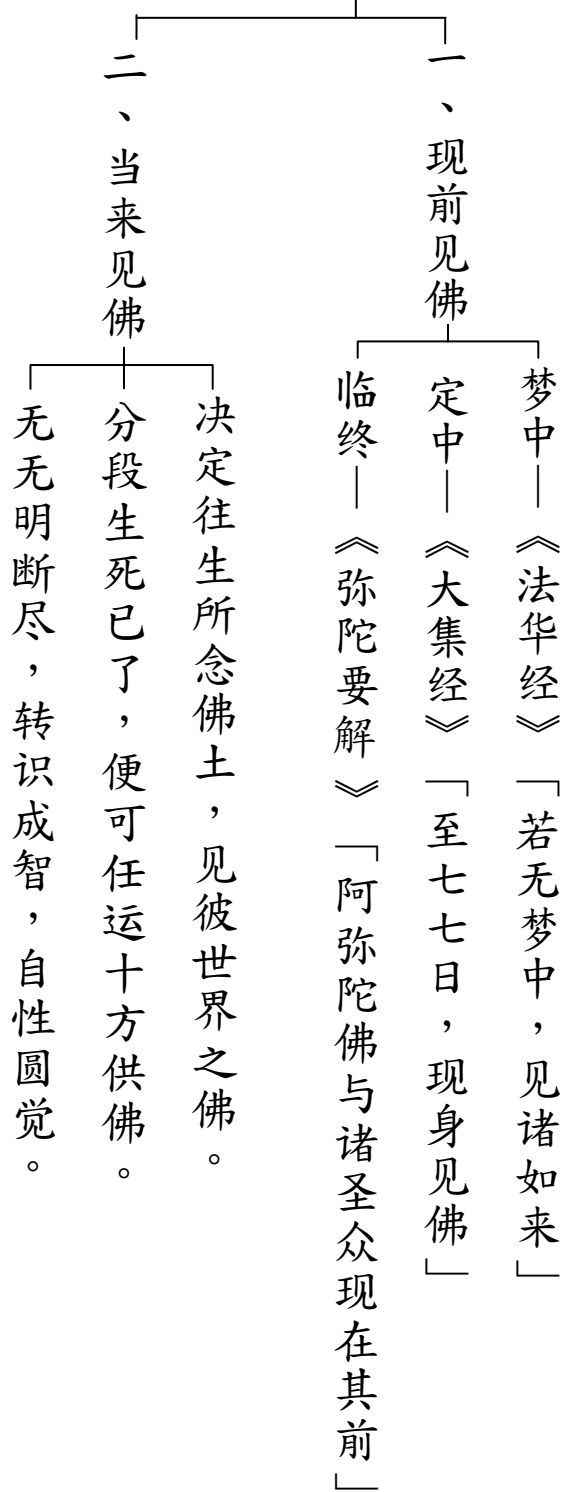 一、现前见佛
梦中——《法华经》「若无梦中，见诸如来」
定中——《大集经》「至七七日，现身见佛」
临终——《弥陀要解》「阿弥陀佛与诸圣众现在其前」
二、当来见佛
决定往生所念佛土，见彼世界之佛。
分段生死已了，便可任运十方供佛。
无无明断尽，转识成智，自性圆觉。